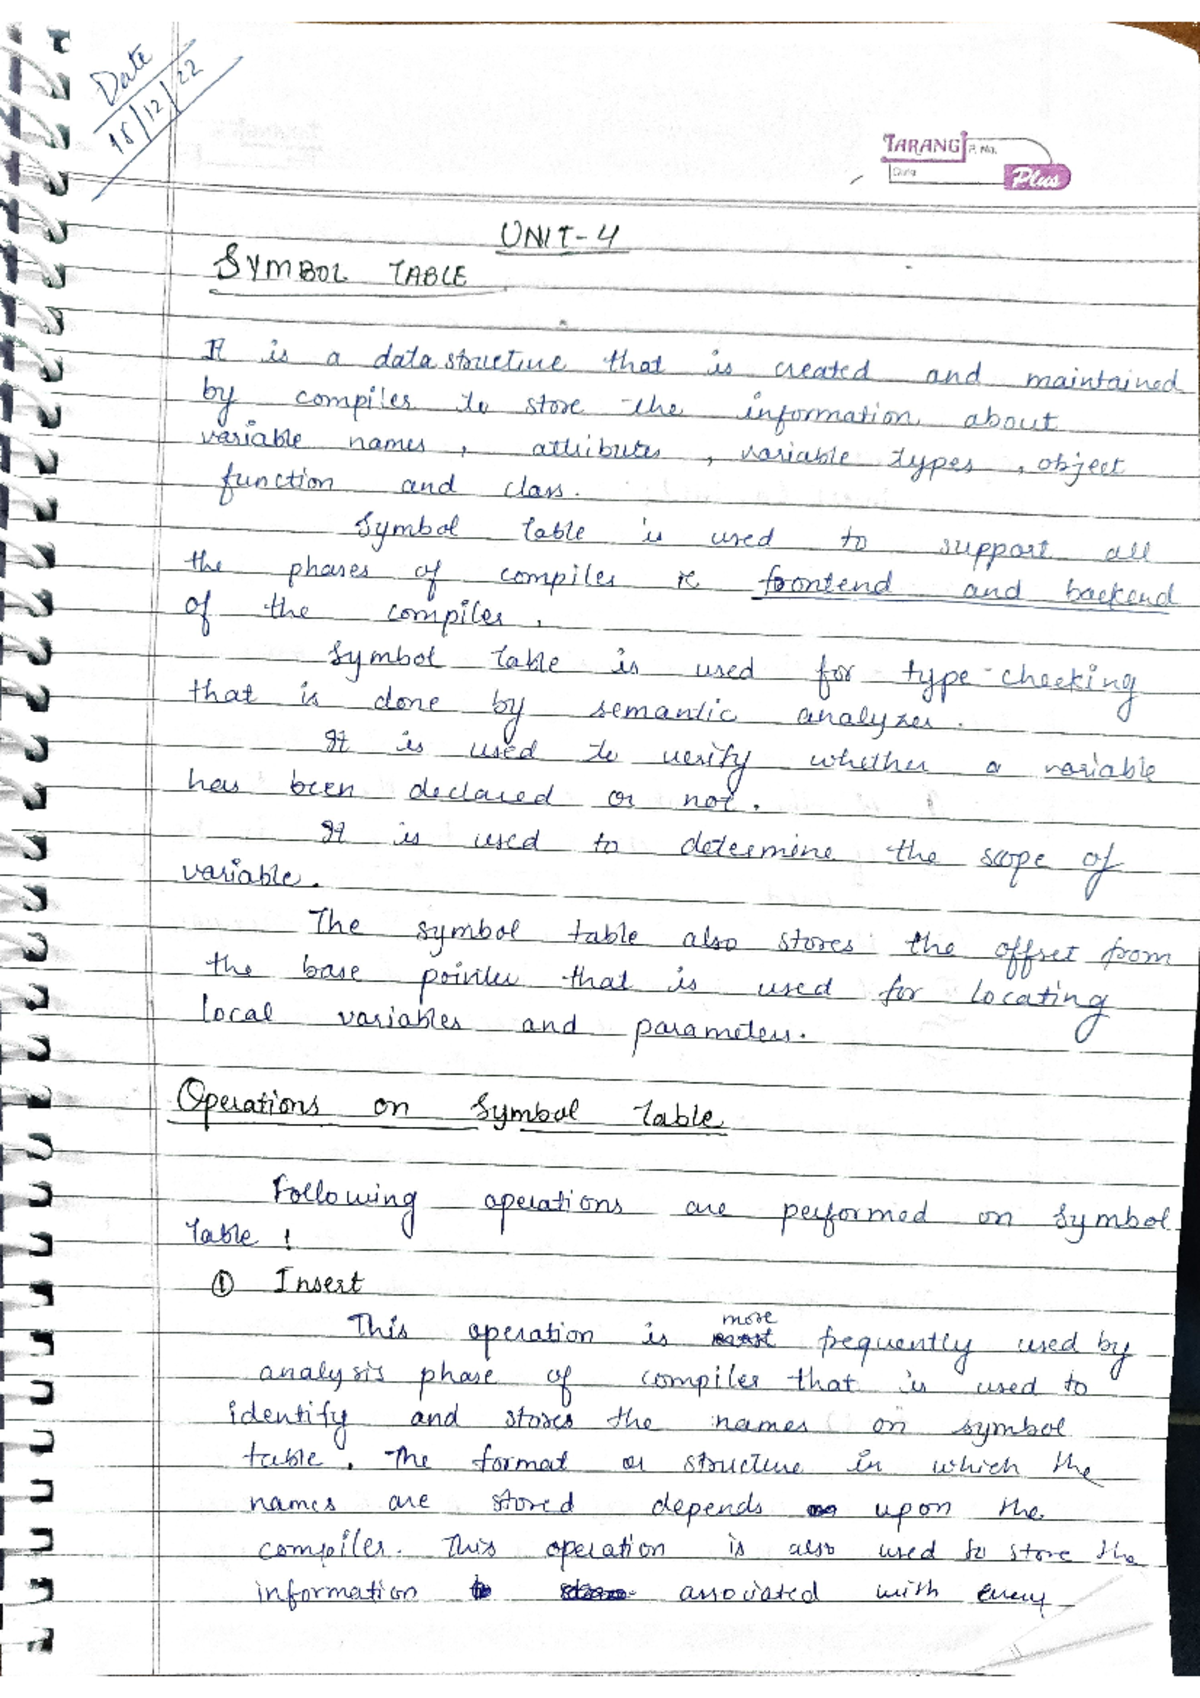 Date
18/12/22
TARANG P. No.
Date
Plus
UNIT-4
SYMBOL TABLE
It is a data structure that is created and maintained
by compiler to store the information about
variable names, attributes, variable types, object
function and class.
Symbol Table is used to support all
the phases of compiler ie frontend and backend
of the compiler.
Symbol Table is used for type-checking
that is done by semantic analyzer.
It is used to verify whether a variable
has been declared or not.
It is used to determine the scope of
variable.
The symbol table also stores the offset from
the base pointer that is used for locating
local variables and parameters.
Operations on Symbol Table
Following operations are performed on Symbol
Table :
① Insert
This operation is more frequently used by
analysis phase of compiler that is used to
identify and stores the names on symbol
table. The format or structure in which the
names are stored depends upon the
compiler. This operation is also used to store the
information associated with every